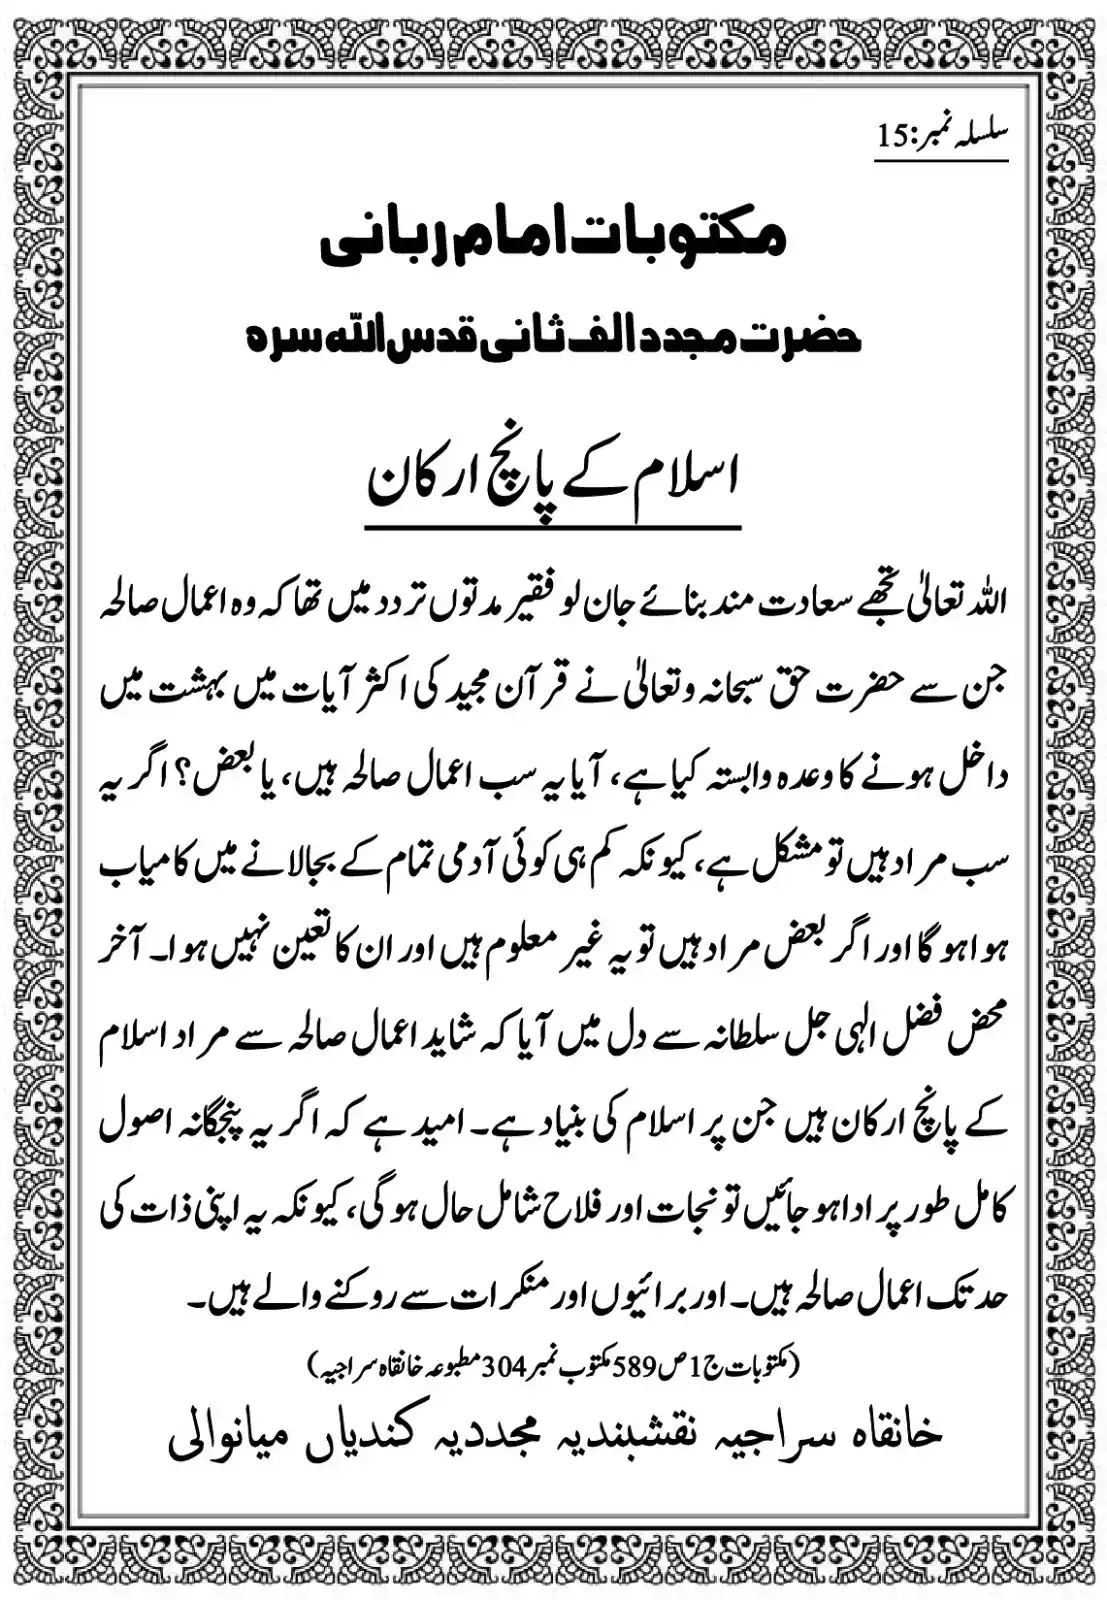 سلسلہ نمبر:15
مکتوبات امام ربانی
حضرت مجدد الف ثانی قدس اللہ سرہ
اسلام کے پانچ ارکان
اللہ تعالیٰ تجھے سعادت مند بنائے جان لو فقیر مدتوں تردد میں تھا کہ وہ اعمال صالحہ
جن سے حضرت حق سبحانہ وتعالیٰ نے قرآن مجید کی اکثر آیات میں بہشت میں
داخل ہونے کا وعدہ وابستہ کیا ہے، آیا یہ سب اعمال صالحہ ہیں، یا بعض؟ اگر یہ
سب مراد ہیں تو مشکل ہے، کیونکہ کم ہی کوئی آدمی تمام کے بجالانے میں کامیاب
ہوا ہوگا اور اگر بعض مراد ہیں تو یہ غیر معلوم ہیں اور ان کا تعین نہیں ہوا۔ آخر
محض فضل الہی جل سلطانہ سے دل میں آیا کہ شاید اعمال صالحہ سے مراد اسلام
کے پانچ ارکان ہیں جن پر اسلام کی بنیاد ہے۔ امید ہے کہ اگر یہ پنجگانہ اصول
کامل طور پر ادا ہو جائیں تو نجات اور فلاح شامل حال ہوگی، کیونکہ یہ اپنی ذات کی
حد تک اعمال صالحہ ہیں۔ اور برائیوں اور منکرات سے روکنے والے ہیں۔
(مکتوبات ج1 ص589 مکتوب نمبر304 مطبوعہ خانقاہ سراجیہ)
خانقاہ سراجیہ نقشبندیہ مجددیہ کندیاں میانوالی